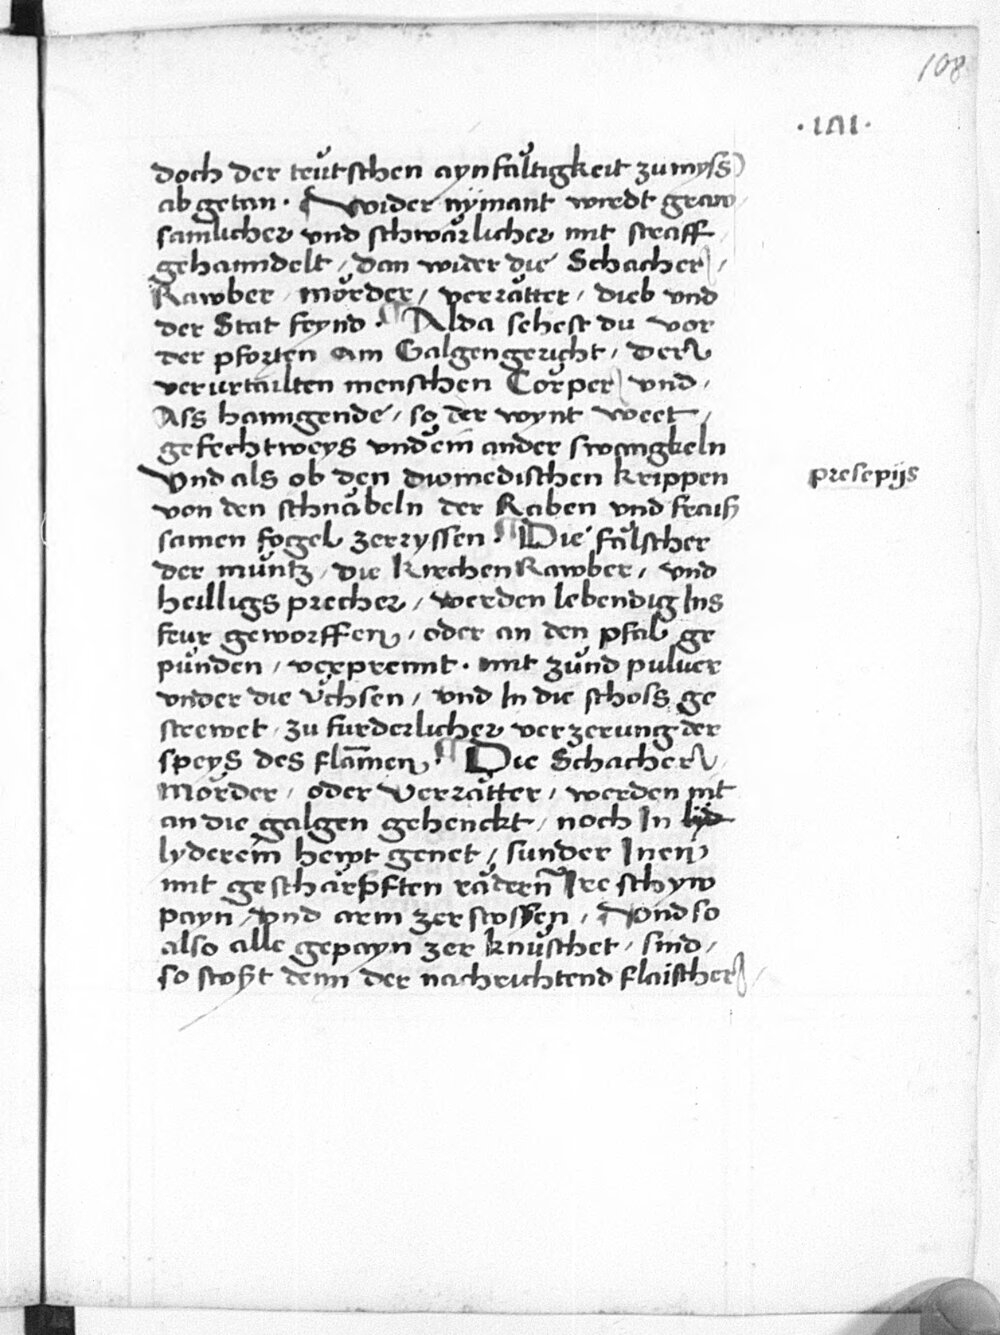 108
·LVI·
doch der teütschen aynfältigkeit zu myſs
ab getan · Wider nÿmant wirdt graw
samlicher vnd schwärlicher mit straff
gehanndelt / dan wider die Schacher /
Rawber / mörder / verrätter / dieb vnd
der Stat feynd · ¶ Alda sehest du vor
der pforten am Galgengericht / der
verurtailten menschen Cörper vnd /
Ass hanngende / so der wynt weet /
gefechtweys vndein ander swangkeln
Vnd als ob den diomedischen krippen
presepijs
von den schnäbeln der Raben vnd fraiß
samen fogel zerryssen · ¶ Die fälscher
der müntz / die kirchen Rawber / vnd
heilligs precher / werden lebendig Ins
feur geworffen / oder an den pfal ge
pünden / verprennt · mit zünd puluer
vnder die v̈chsen / vnd In die schoss ge
strewet / zu furderlicher verzerung der
speys des flam̄en · ¶ Die Schacher
Mörder / oder Verrätter / werden nit
an die galgen gehenckt / noch In
lyderein hewt genet / sunder Inen
mit geschärpften rädern̄ Ire schyw
payn / vnd arm zerstossen / Vnd so
also alle gepayn zerknüschet / sind /
so stoßt denn der nachrichtend flaischer /